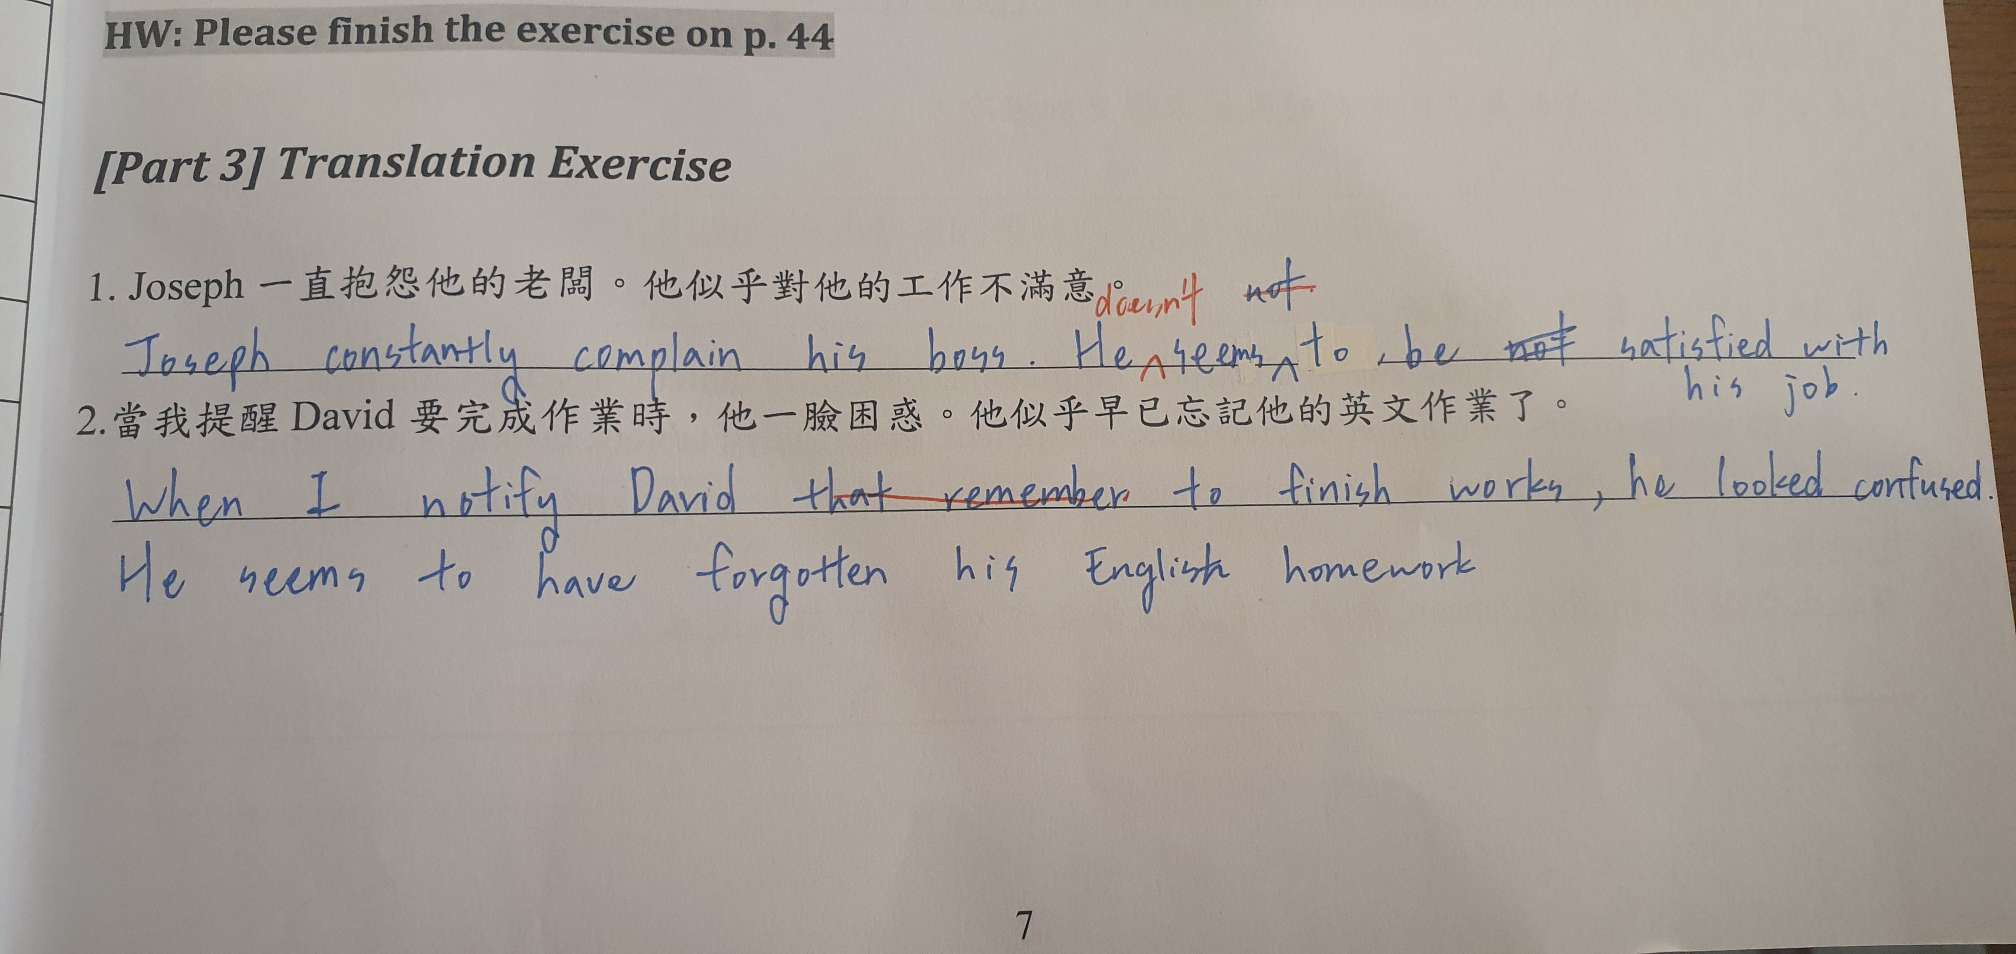 HW: Please finish the exercise on p. 44
[Part 3] Translation Exercise
1. Joseph 一直抱怨他的老闆。他似乎對他的工作不滿意。
doesn't not
Joseph constantly complain his boss. He seems to be not satisfied with
his job.
2.當我提醒 David 要完成作業時，他一臉困惑。他似乎早已忘記他的英文作業了。
When I notify David that remember to finish works, he looked confused.
He seems to have forgotten his English homework
7